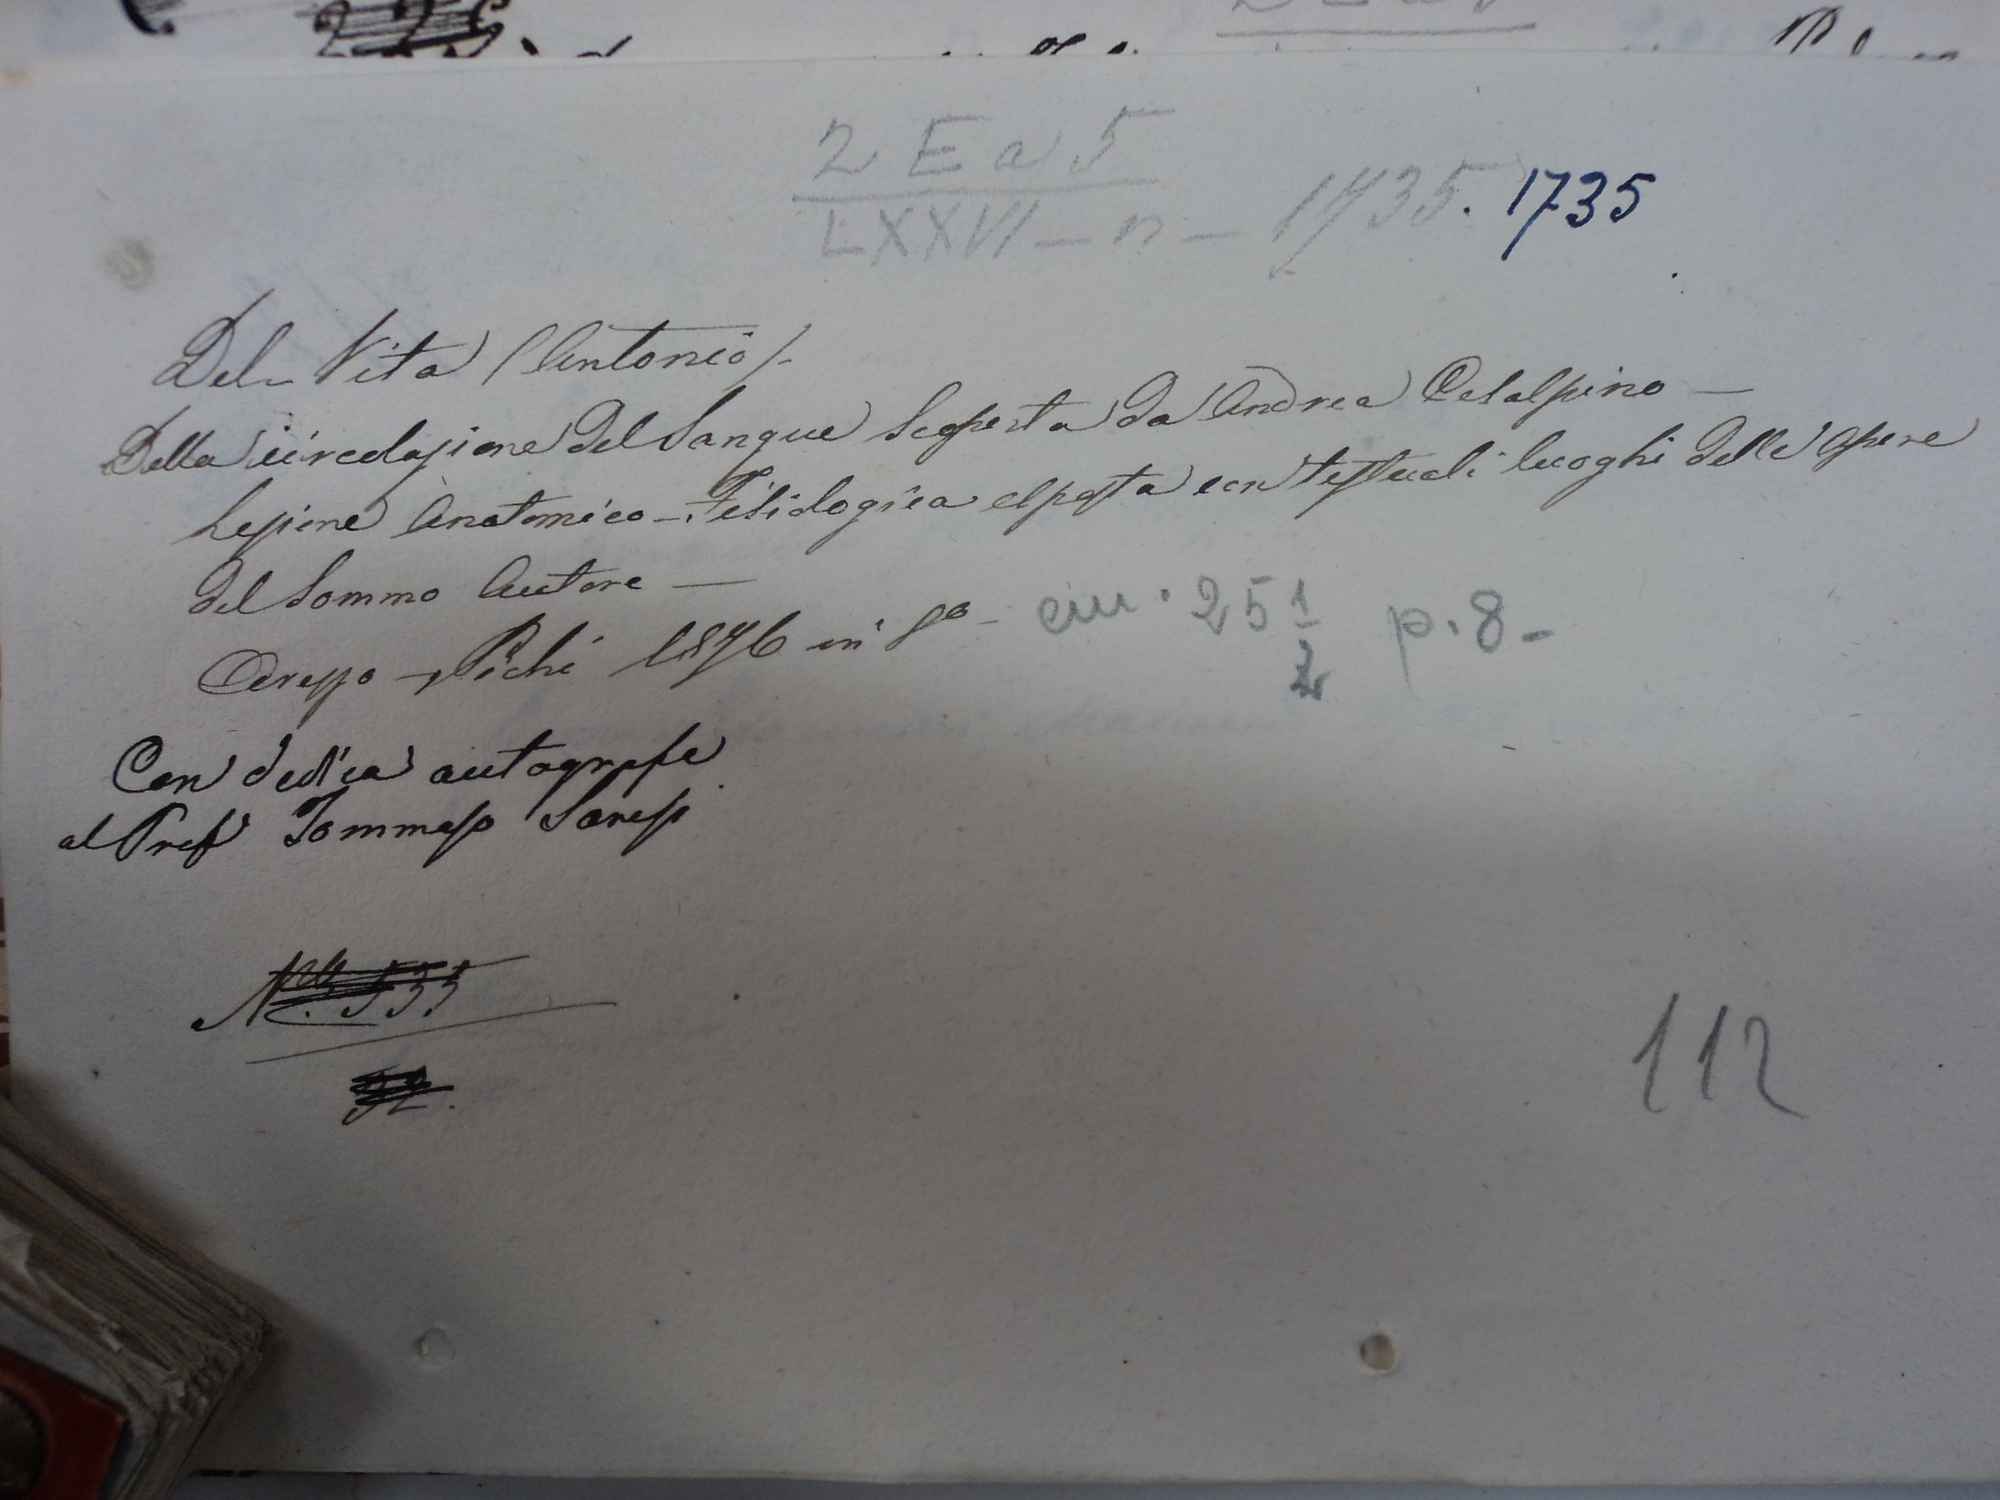 2 E a 5
LXXVI - n - 1735. 1735
Del Vita (Antonio) -
Della circolazione del sangue scoperta da Andrea Cesalpino -
Lezione Anatomico-Fisiologica esposta con testuali luoghi delle opere
del Sommo Autore -
Arezzo - Pichi 1876 in 8° - cm. 25 1/2 p. 8 -
Con dedica autografa
al Prof Tommaso
112